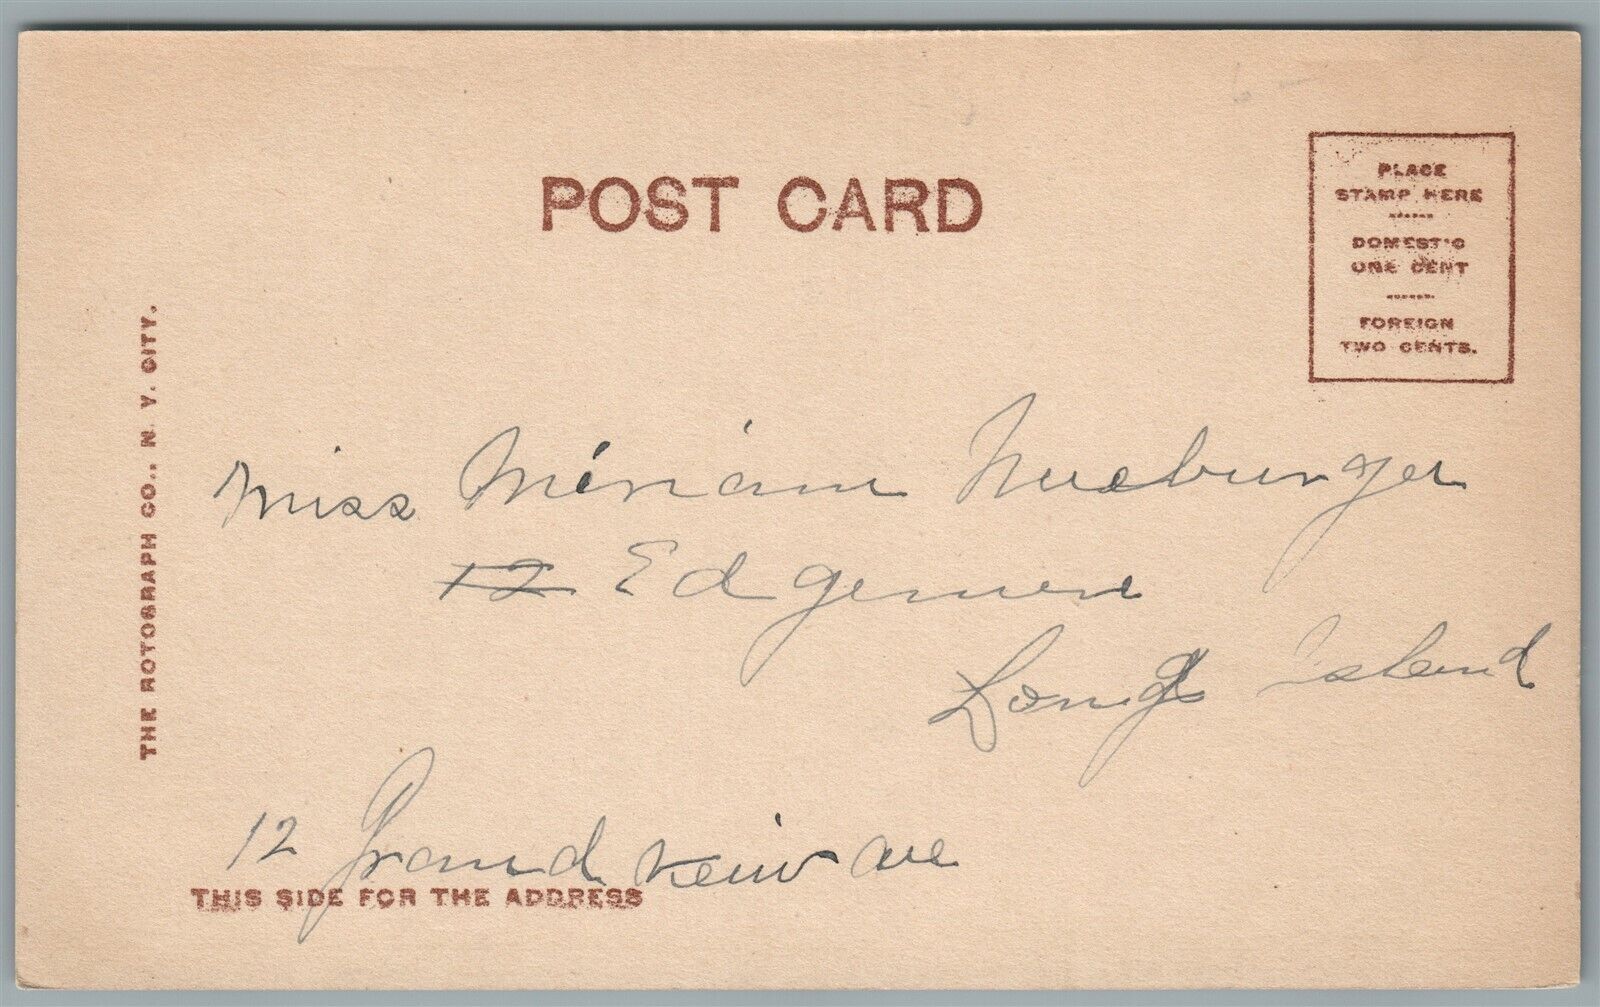 POST CARD
PLACE
STAMP HERE
DOMESTIC
ONE CENT
FOREIGN
TWO CENTS.
THE ROTOGRAPH CO., N. Y. CITY.
Miss Miriam Nueburger
12 Edgemere
Long Island
12 Grand view ave
THIS SIDE FOR THE ADDRESS